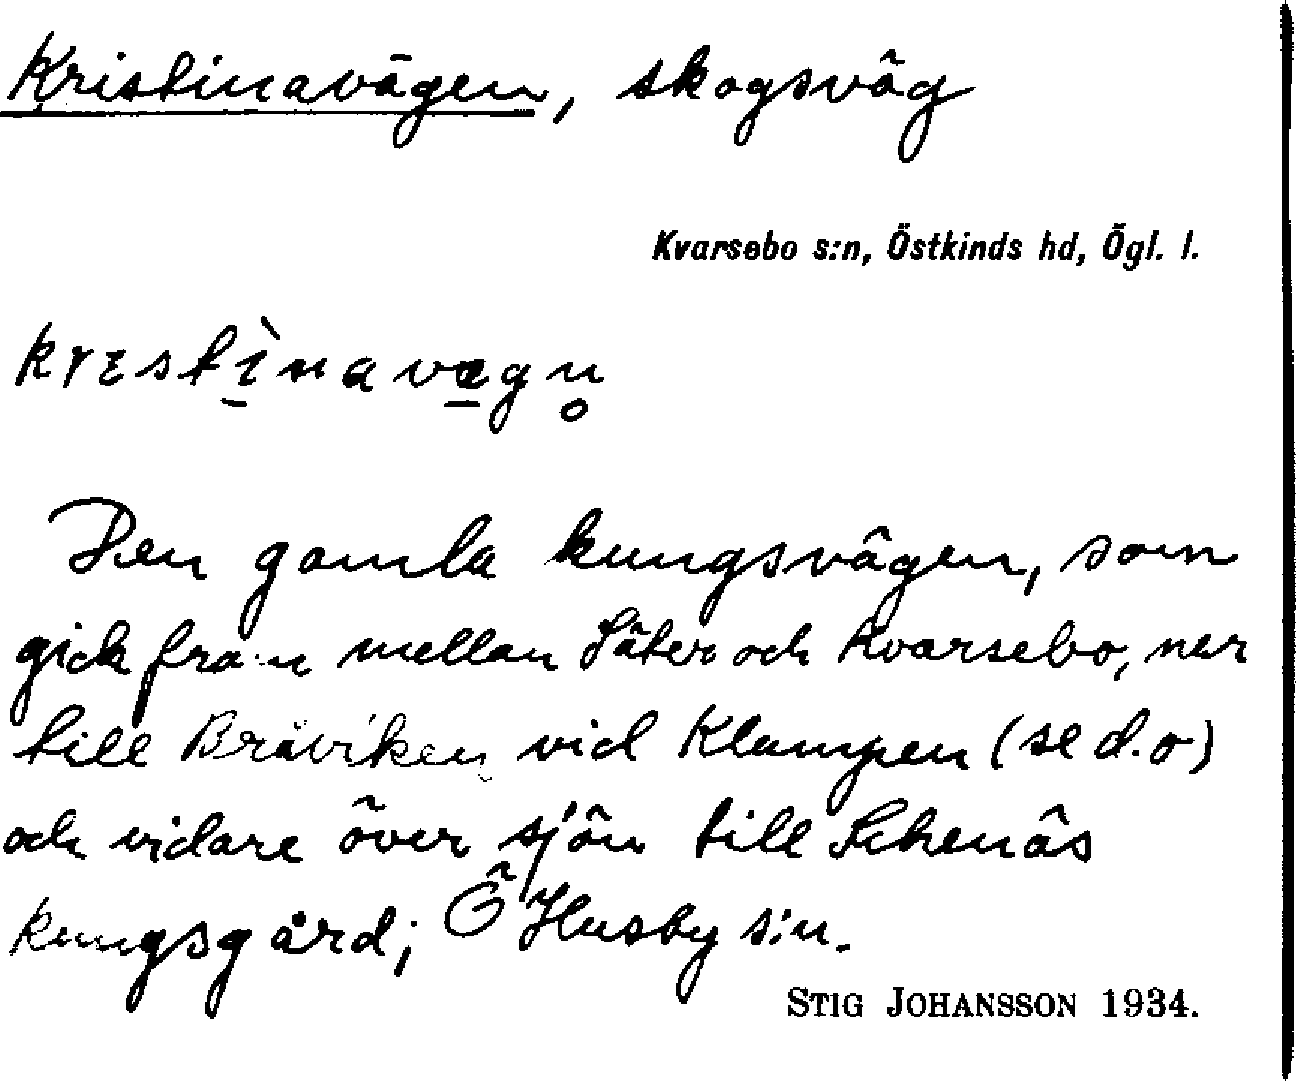 Kristinavägen, skogsväg
Kvarsebo s:n, Östkinds hd, Ögl. l.
krɛstì̠navæ̠gn̥
Den gamla kungsvägen, som
gick från mellan Säter och Kvarsebo, ner
till Bråviken vid Klampen (se d.o)
och vidare över sjön till Skenäs
kungsgård; Ö Husby s:n.
STIG JOHANSSON 1934.